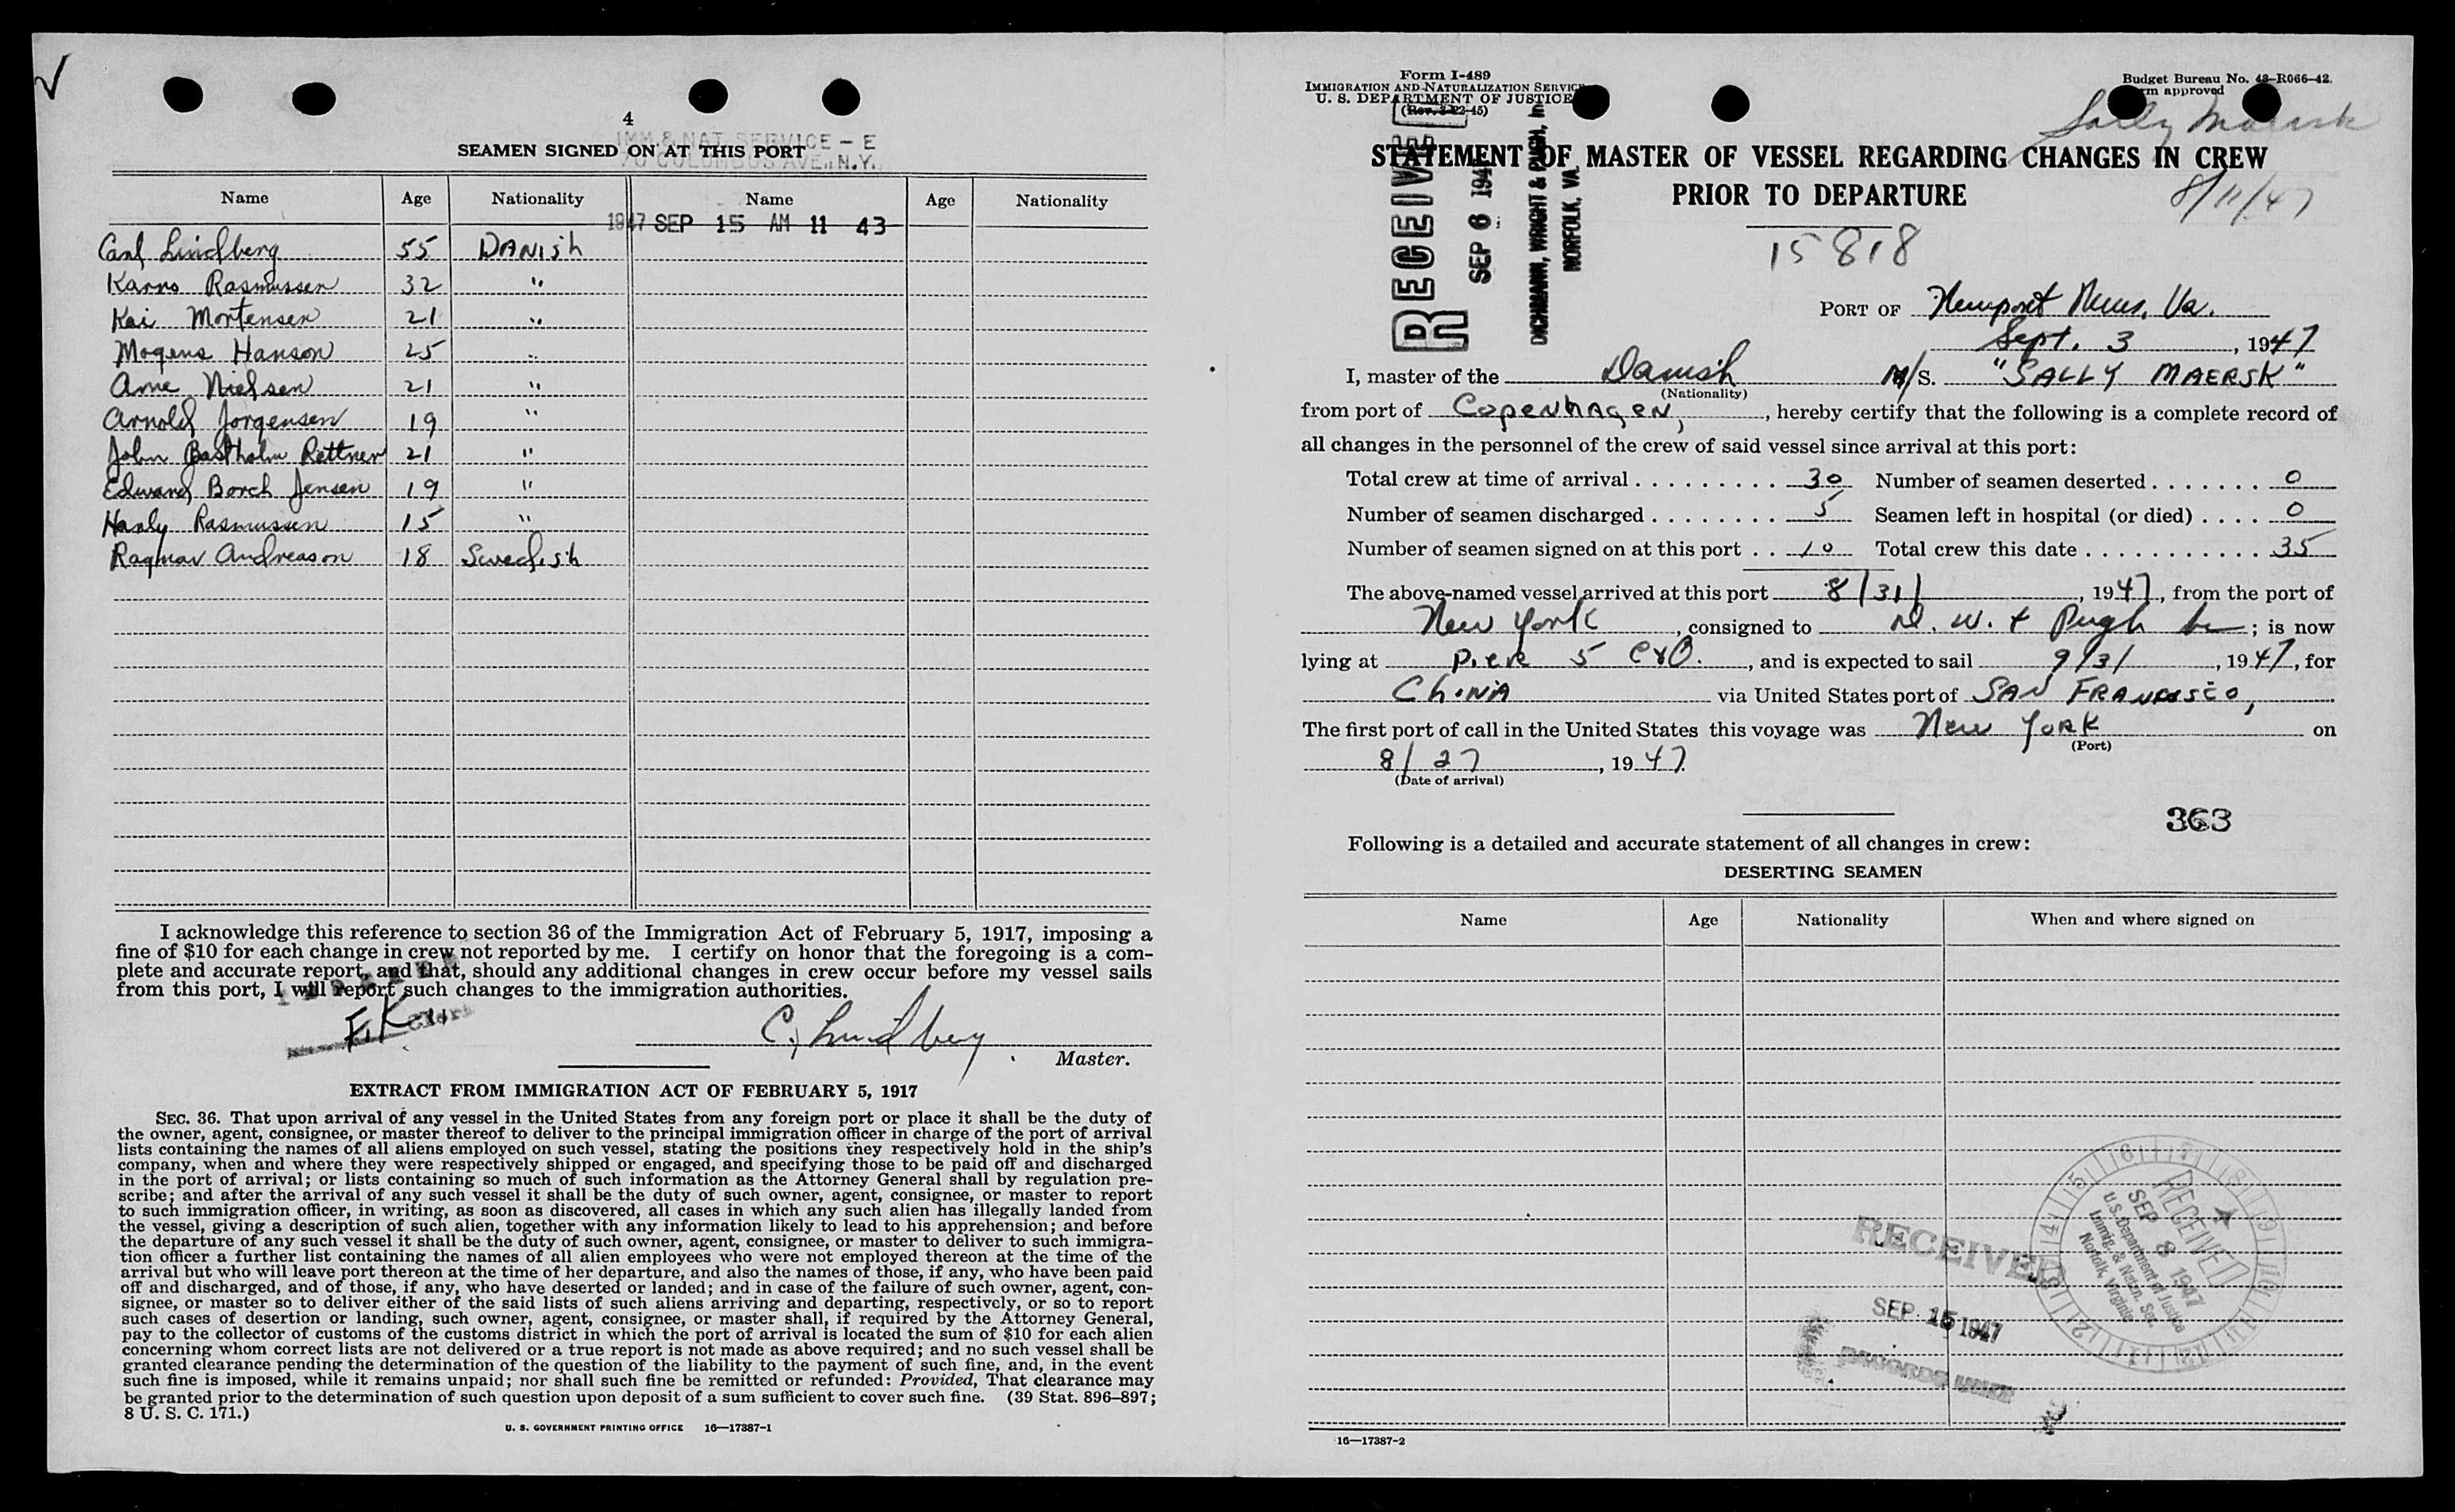 4
IMM & NAT SERVICE – E
70 COLUMBUS AVE., N.Y.
SEAMEN SIGNED ON AT THIS PORT
Name Age Nationality Name Age Nationality
1947 SEP 15 AM 11 43
Carl Lindberg 55 DANISH
Karno Rasmussen 32 "
Kai Mortensen 21 "
Mogens Hanson 25 "
Arne Nielsen 21 "
Arnold Jorgensen 19 "
John Bastholm Rettner 21 "
Edward Borch Jensen 19 "
Hanly Rasmussen 15 "
Ragnar Andreason 18 Swedish
I acknowledge this reference to section 36 of the Immigration Act of February 5, 1917, imposing a
fine of $10 for each change in crew not reported by me. I certify on honor that the foregoing is a com-
plete and accurate report, and that, should any additional changes in crew occur before my vessel sails
from this port, I will report such changes to the immigration authorities.
F.K. Clerk
C. Lindberg
Master.
EXTRACT FROM IMMIGRATION ACT OF FEBRUARY 5, 1917
SEC. 36. That upon arrival of any vessel in the United States from any foreign port or place it shall be the duty of
the owner, agent, consignee, or master thereof to deliver to the principal immigration officer in charge of the port of arrival
lists containing the names of all aliens employed on such vessel, stating the positions they respectively hold in the ship's
company, when and where they were respectively shipped or engaged, and specifying those to be paid off and discharged
in the port of arrival; or lists containing so much of such information as the Attorney General shall by regulation pre-
scribe; and after the arrival of any such vessel it shall be the duty of such owner, agent, consignee, or master to report
to such immigration officer, in writing, as soon as discovered, all cases in which any such alien has illegally landed from
the vessel, giving a description of such alien, together with any information likely to lead to his apprehension; and before
the departure of any such vessel it shall be the duty of such owner, agent, consignee, or master to deliver to such immigra-
tion officer a further list containing the names of all alien employees who were not employed thereon at the time of the
arrival but who will leave port thereon at the time of her departure, and also the names of those, if any, who have been paid
off and discharged, and of those, if any, who have deserted or landed; and in case of the failure of such owner, agent, con-
signee, or master so to deliver either of the said lists of such aliens arriving and departing, respectively, or so to report
such cases of desertion or landing, such owner, agent, consignee, or master shall, if required by the Attorney General,
pay to the collector of customs of the customs district in which the port of arrival is located the sum of $10 for each alien
concerning whom correct lists are not delivered or a true report is not made as above required; and no such vessel shall be
granted clearance pending the determination of the question of the liability to the payment of such fine, and, in the event
such fine is imposed, while it remains unpaid; nor shall such fine be remitted or refunded: Provided, That clearance may
be granted prior to the determination of such question upon deposit of a sum sufficient to cover such fine. (39 Stat. 896–897;
8 U. S. C. 171.)
U. S. GOVERNMENT PRINTING OFFICE 16—17387-1
Form I-489
IMMIGRATION AND NATURALIZATION SERVICE
U. S. DEPARTMENT OF JUSTICE
(Rev. 2-22-45)
Budget Bureau No. 43-R066-42.
approved
Sally Maersk
8/11/47
RECEIVED
SEP 6 1947
DICHMANN, WRIGHT & PUGH, In
NORFOLK, VA.
STATEMENT OF MASTER OF VESSEL REGARDING CHANGES IN CREW
PRIOR TO DEPARTURE
15818
PORT OF Newport News, Va.
Sept. 3, 1947
I, master of the Danish M/S. "SALLY MAERSK"
(Nationality)
from port of Copenhagen, , hereby certify that the following is a complete record of
all changes in the personnel of the crew of said vessel since arrival at this port:
Total crew at time of arrival . . . . . . . . . . 30 Number of seamen deserted . . . . . . . 0
Number of seamen discharged . . . . . . . . 5 Seamen left in hospital (or died) . . . . 0
Number of seamen signed on at this port . . 10 Total crew this date . . . . . . . . . . . . 35
The above-named vessel arrived at this port 8/31/, 1947, from the port of
New York, consigned to D. W. & Pugh Inc; is now
lying at Pier 5 C&O., and is expected to sail 9/3/, 1947, for
China via United States port of SAN FRANCISCO,
The first port of call in the United States this voyage was New York on
(Port)
8/27, 1947.
(Date of arrival)
363
Following is a detailed and accurate statement of all changes in crew:
DESERTING SEAMEN
Name Age Nationality When and where signed on
RECEIVED
SEP 8 1947
U.S. Department of Justice
Immig. & Natzn. Ser.
Norfolk, Virginia
RECEIVED
SEP 15 1947
RECORDS UNIT
16—17387-2